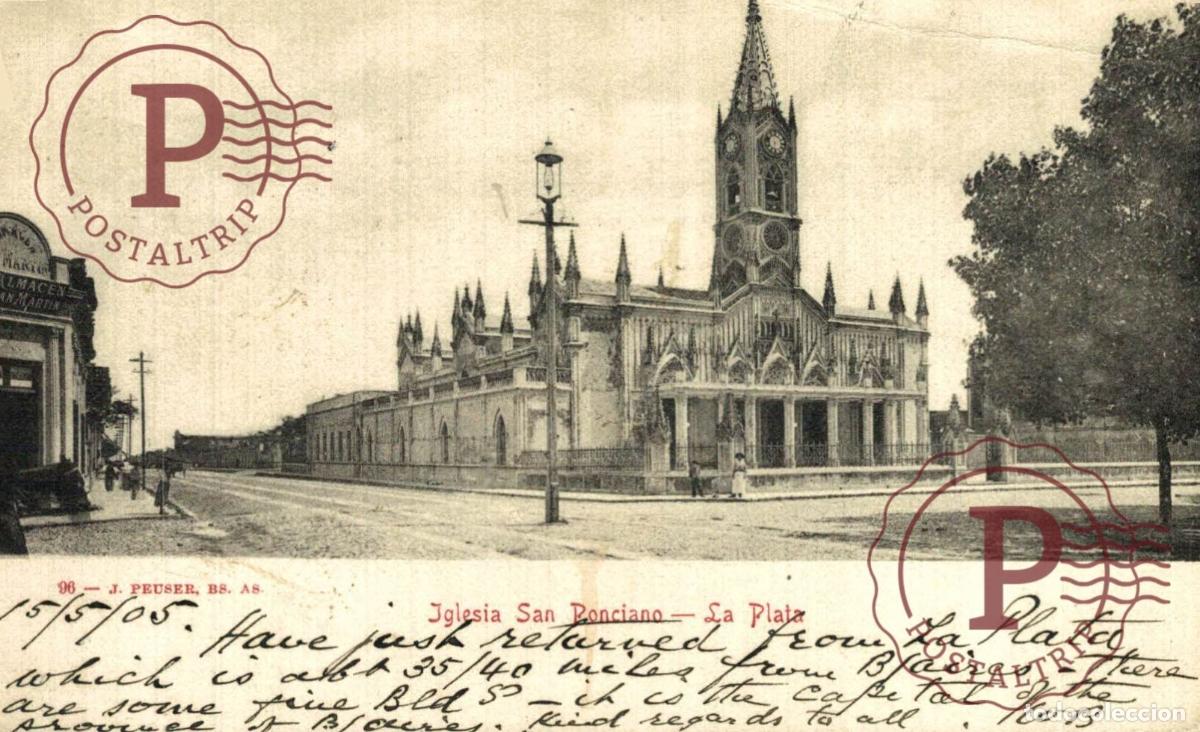 POSTALTRIP
MARTIN
ALMACEN
SAN MARTIN
96 — J. PEUSER, BS. AS.
Iglesia San Ponciano — La Plata
15/5/05. Have just returned from La Plata
which is abt 35/40 miles from B/aires. There
are some fine Bldgs — it is the capital of the
province of B/aires. Kind regards to all.
POSTALTRIP
todocoleccion